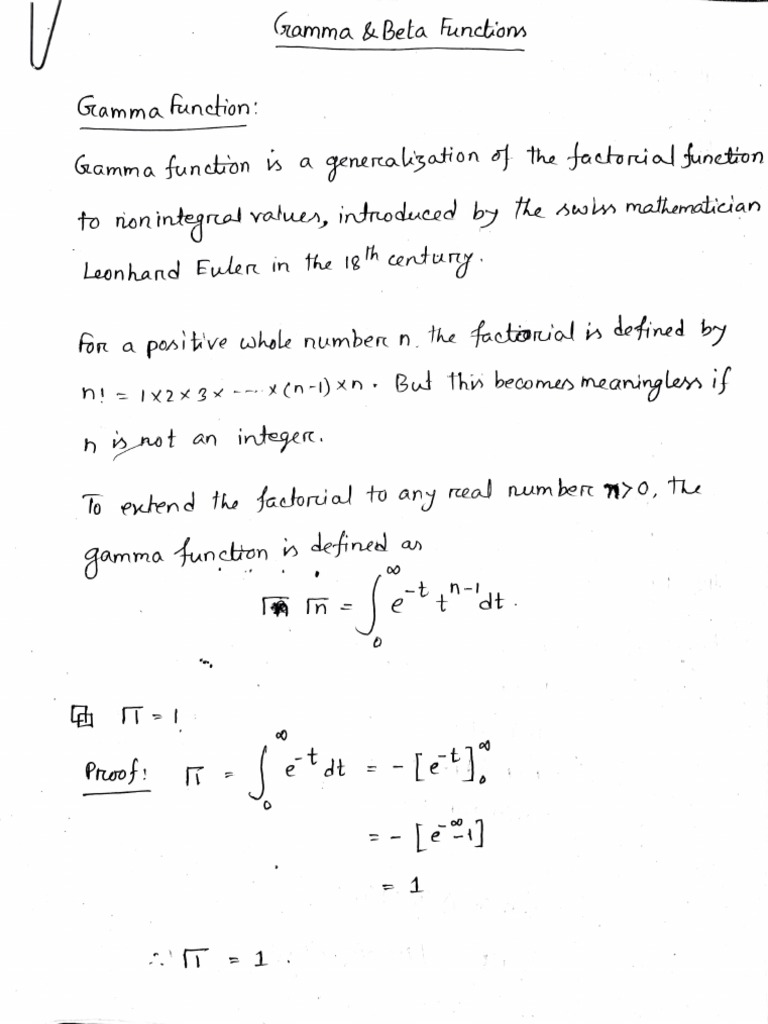 Gamma & Beta Functions
Gamma Function:
Gamma function is a generalization of the factorial function
to nonintegral values, introduced by the swiss mathematician
Leonhard Euler in the 18th century.
For a positive whole number n. the factorial is defined by
n! = 1×2×3× ---- ×(n-1)×n. But this becomes meaningless if
n is not an integer.
To extend the factorial to any real number n>0, the
gamma function is defined as
Γn = ∫₀^∞ e^-t t^n-1 dt.
Γ1 = 1
Proof: Γ1 = ∫₀^∞ e^-t dt = -[e^-t]₀^∞
= -[e^-∞ -1]
= 1
∴ Γ1 = 1.